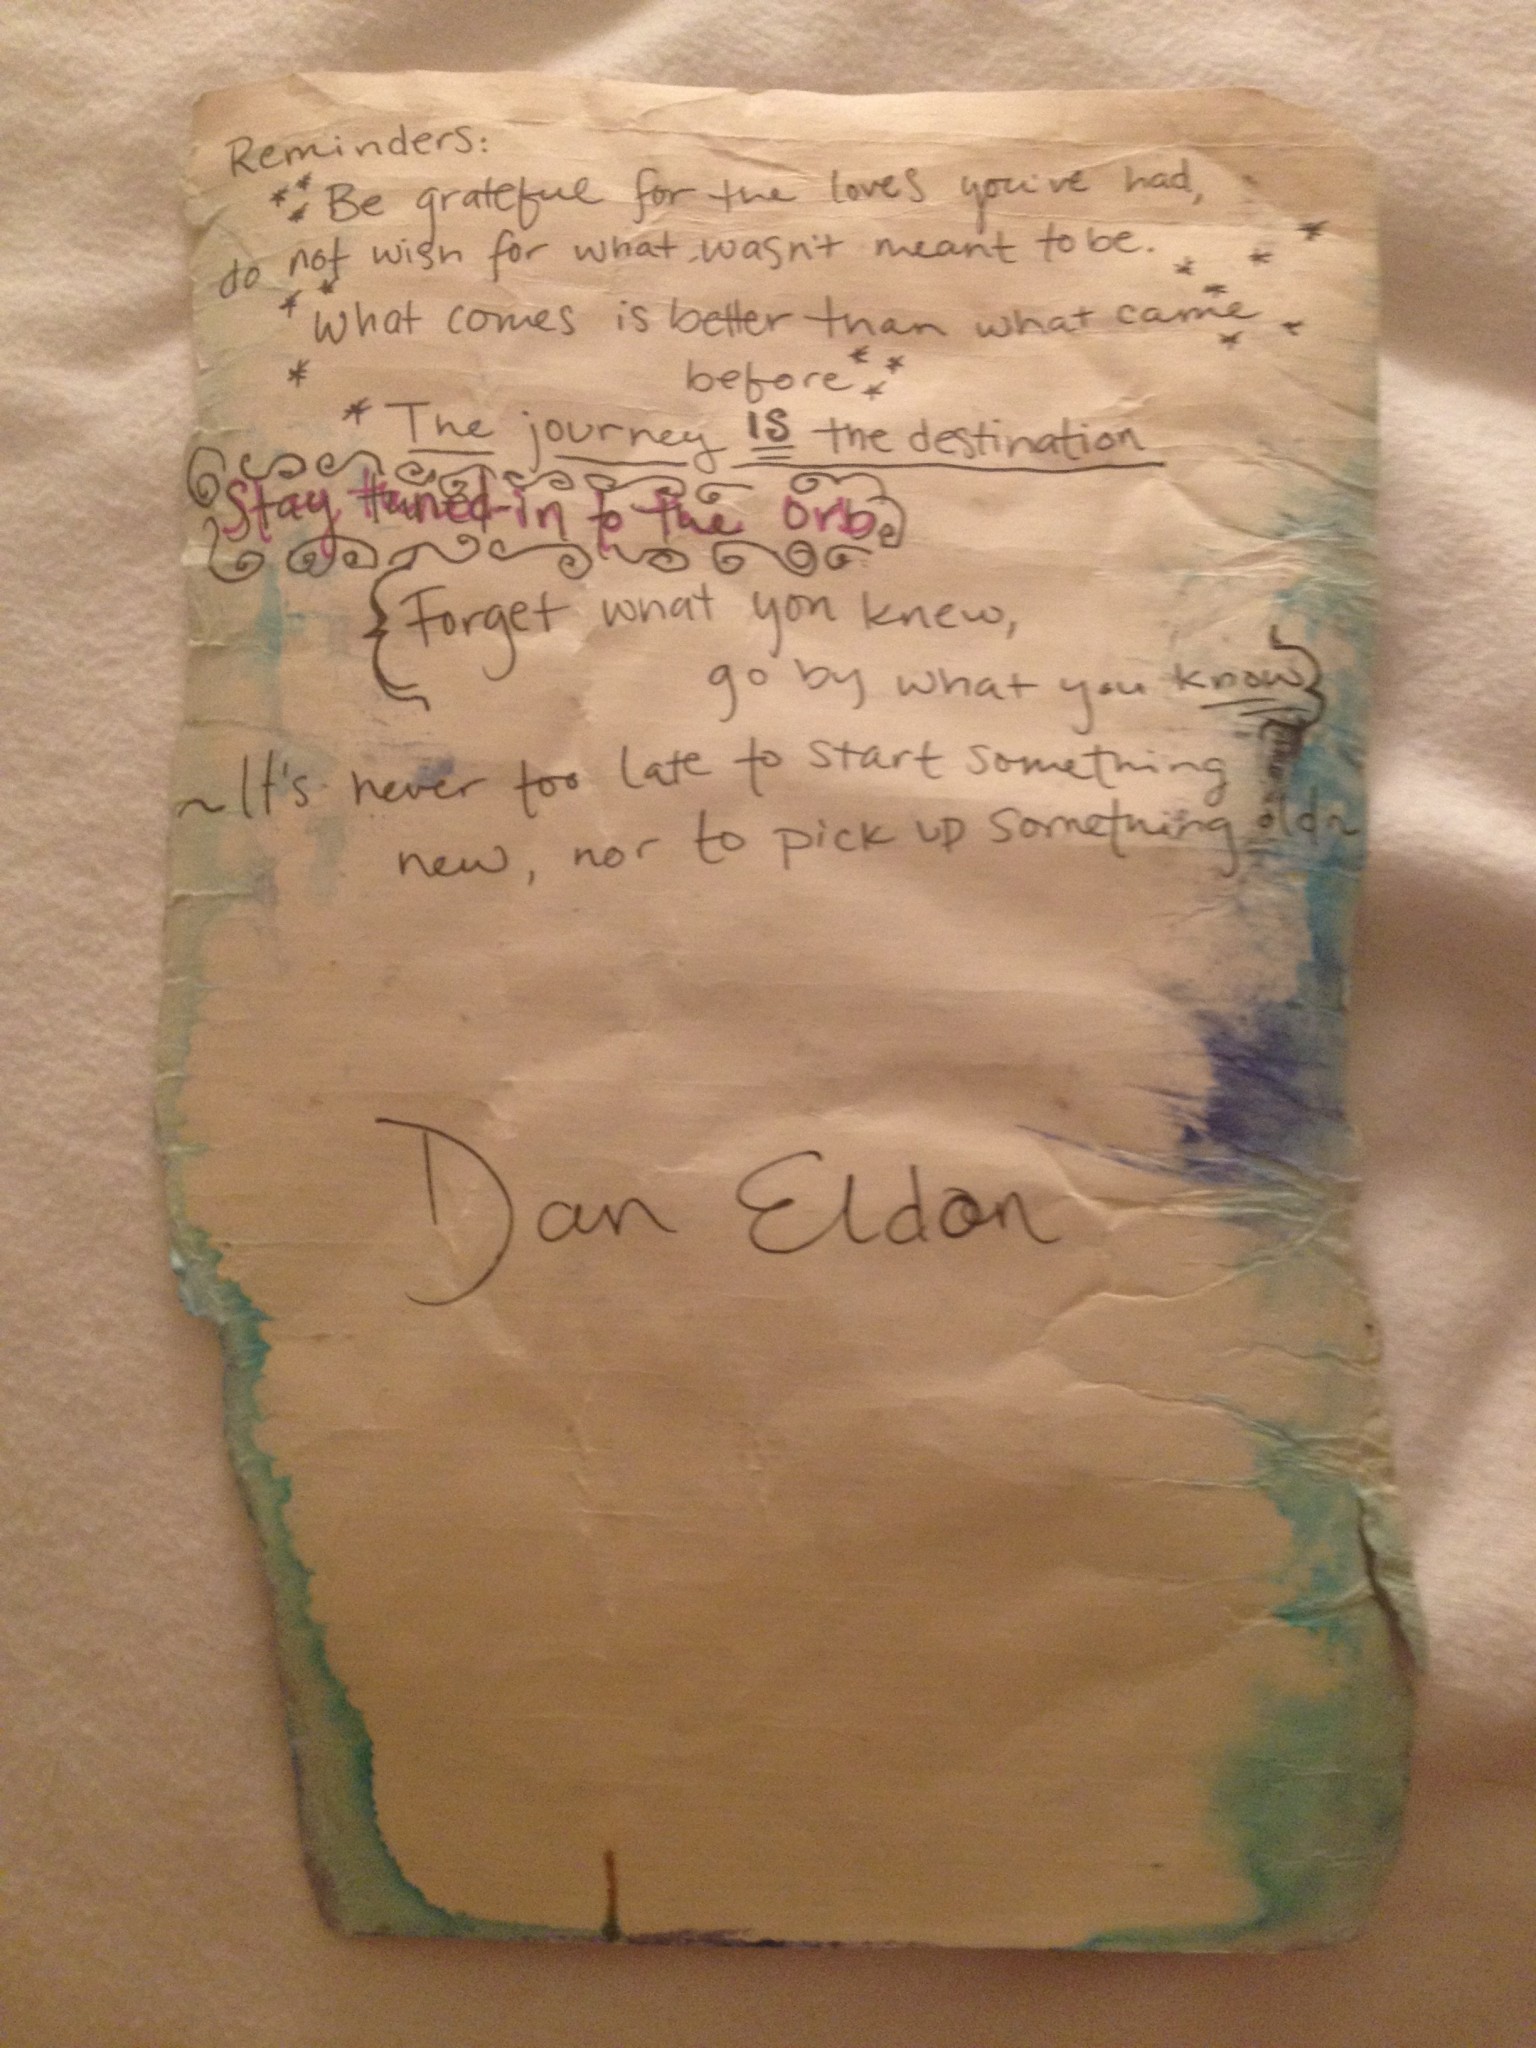 Reminders:
Be grateful for the loves you've had,
do not wish for what wasn't meant to be.
*What comes is better than what came
before
* The journey IS the destination
Stay tuned-in to the Orb
{Forget what you knew,
go by what you know}
~It's never too late to start something
new, nor to pick up something old~
Dan Eldon